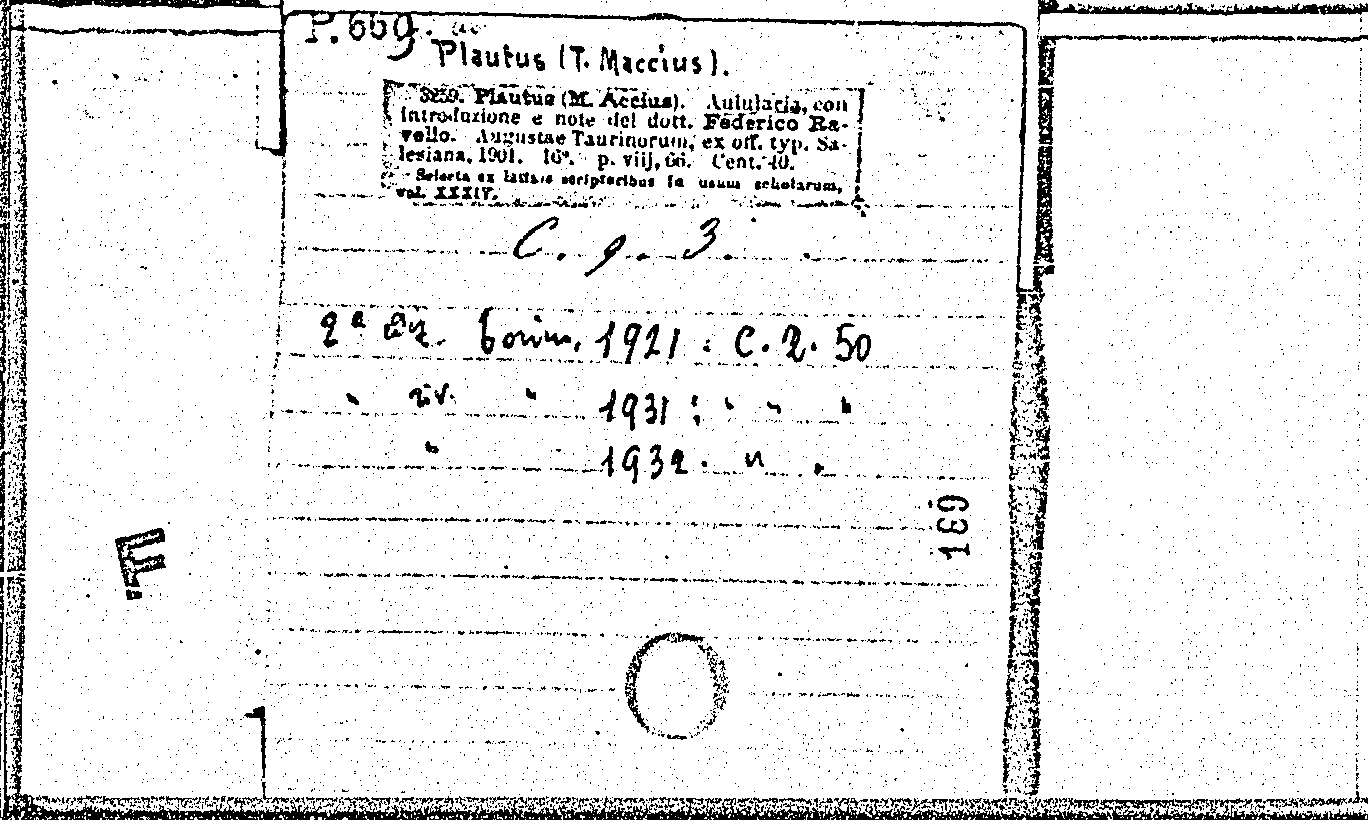 P. 669.
Plautus (T. Maccius).
3259. Plautus (M. Accius). Aulularia, con
introduzione e note del dott. Federico Ra-
vello. Augustae Taurinorum, ex off. typ. Sa-
lesiana, 1901. 16°. p. viij, 66. Cent. 40.
Selecta ex latinis scriptoribus in usum scholarum,
vol. XXXIV.
C. 9. 3.
2ª 1921. C. 2. 50
" " 1931: " " "
" 1932. " "
189
F.